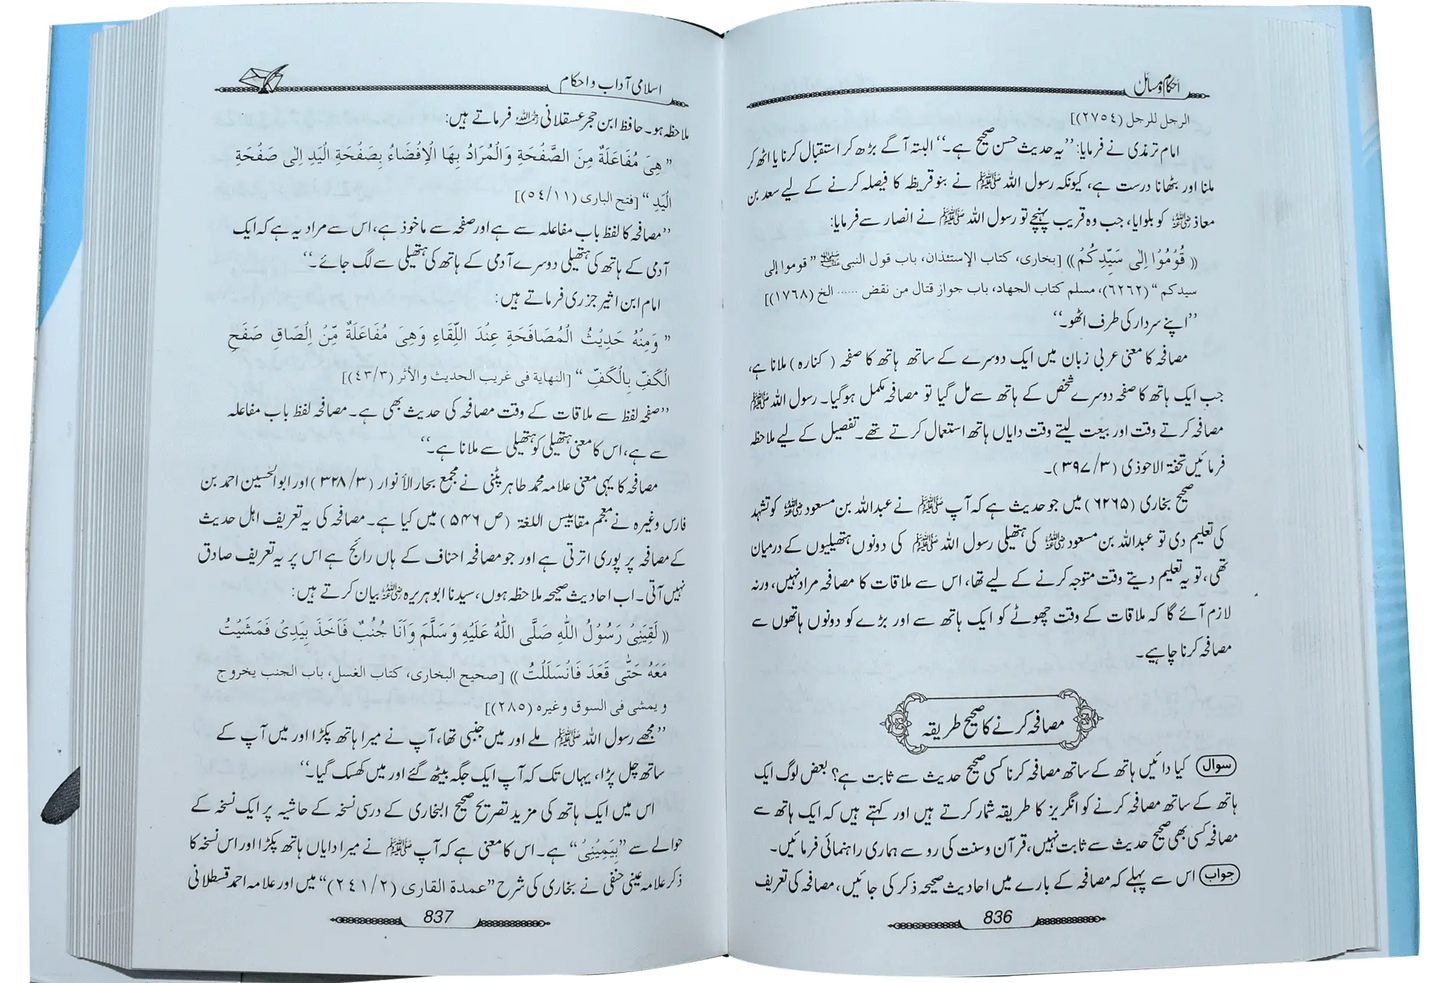 احکام و مسائل
الرجل للرجل (٢٧٥٤)]
امام ترمذی نے فرمایا: ”یہ حدیث حسن صحیح ہے۔“ البتہ آگے بڑھ کر استقبال کرنا یا اٹھ کر
ملنا اور بٹھانا درست ہے، کیونکہ رسول اللہ ﷺ نے بنو قریظہ کا فیصلہ کرنے کے لیے سعد بن
معاذ رضی اللہ عنہ کو بلوایا، جب وہ قریب پہنچے تو رسول اللہ ﷺ نے انصار سے فرمایا:
(( قُوْمُوْا اِلٰى سَيِّدِكُمْ )) [بخاری، کتاب الإستئذان، باب قول النبی ﷺ ” قوموا إلی
سیدکم “ (٦٢٦٢)، مسلم کتاب الجهاد، باب جواز قتال من نقض ...... الخ (١٧٦٨)]
”اپنے سردار کی طرف اٹھو۔“
مصافحہ کا معنی عربی زبان میں ایک دوسرے کے ساتھ ہاتھ کا صفحہ ( کنارہ ) ملانا ہے،
جب ایک ہاتھ کا صفحہ دوسرے شخص کے ہاتھ سے مل گیا تو مصافحہ مکمل ہو گیا۔ رسول اللہ ﷺ
مصافحہ کرتے وقت اور بیعت لیتے وقت دایاں ہاتھ استعمال کرتے تھے۔ تفصیل کے لیے ملاحظہ
فرمائیں تحفۃ الاحوذی (۳/ ۳۹۷)۔
صحیح بخاری (۶۲۶۵) میں جو حدیث ہے کہ آپ ﷺ نے عبداللہ بن مسعود رضی اللہ عنہ کو تشہد
کی تعلیم دی تو عبداللہ بن مسعود رضی اللہ عنہ کی ہتھیلی رسول اللہ ﷺ کی دونوں ہتھیلیوں کے درمیان
تھی، تو یہ تعلیم دیتے وقت متوجہ کرنے کے لیے تھا، اس سے ملاقات کا مصافحہ مراد نہیں، ورنہ
لازم آئے گا کہ ملاقات کے وقت چھوٹے کو ایک ہاتھ سے اور بڑے کو دونوں ہاتھوں سے
مصافحہ کرنا چاہیے۔
مصافحہ کرنے کا صحیح طریقہ
سوال کیا دائیں ہاتھ کے ساتھ مصافحہ کرنا کسی صحیح حدیث سے ثابت ہے؟ بعض لوگ ایک
ہاتھ کے ساتھ مصافحہ کرنے کو انگریز کا طریقہ شمار کرتے ہیں اور کہتے ہیں کہ ایک ہاتھ سے
مصافحہ کسی بھی صحیح حدیث سے ثابت نہیں، قرآن و سنت کی رو سے ہماری راہنمائی فرمائیں۔
جواب اس سے پہلے کہ مصافحہ کے بارے میں احادیث صحیحہ ذکر کی جائیں، مصافحہ کی تعریف
836
اسلامی آداب و احکام
ملاحظہ ہو۔ حافظ ابن حجر عسقلانی رحمہ اللہ فرماتے ہیں:
” هِىَ مُفَاعَلَةٌ مِنَ الصَّفْحَةِ وَالْمُرَادُ بِهَا الْاِفْضَاءُ بِصَفْحَةِ الْيَدِ اِلٰى صَفْحَةِ
الْيَدِ “ [فتح الباری (٥٤/١١)]
”مصافحہ کا لفظ باب مفاعلہ سے ہے اور صفحہ سے ماخوذ ہے، اس سے مراد یہ ہے کہ ایک
آدمی کے ہاتھ کی ہتھیلی دوسرے آدمی کے ہاتھ کی ہتھیلی سے لگ جائے۔“
امام ابن اثیر جزری فرماتے ہیں:
” وَمِنْهُ حَدِيْثُ الْمُصَافَحَةِ عِنْدَ اللِّقَاءِ وَهِىَ مُفَاعَلَةٌ مِّنْ اِلْصَاقِ صَفْحِ
الْكَفِّ بِالْكَفِّ “ [النهاية فی غریب الحدیث والأثر (٤٣/٣)]
”صفحہ لفظ سے ملاقات کے وقت مصافحہ کی حدیث بھی ہے۔ مصافحہ لفظ باب مفاعلہ
سے ہے، اس کا معنی ہتھیلی کو ہتھیلی سے ملانا ہے۔“
مصافحہ کا یہی معنی علامہ محمد طاہر پٹنی نے مجمع بحار الأنوار (۳/ ۳۲۸) اور ابو الحسین احمد بن
فارس وغیرہ نے معجم مقاییس اللغۃ (ص ۵۴۶) میں کیا ہے۔ مصافحہ کی یہ تعریف اہل حدیث
کے مصافحہ پر پوری اترتی ہے اور جو مصافحہ احناف کے ہاں رائج ہے اس پر یہ تعریف صادق
نہیں آتی۔ اب احادیث صحیحہ ملاحظہ ہوں، سیدنا ابو ہریرہ رضی اللہ عنہ بیان کرتے ہیں:
(( لَقِيَنِىْ رَسُوْلُ اللّٰهِ صَلَّى اللّٰهُ عَلَيْهِ وَسَلَّمَ وَاَنَا جُنُبٌ فَاَخَذَ بِيَدِىْ فَمَشَيْتُ
مَعَهٗ حَتّٰى قَعَدَ فَانْسَلَلْتُ )) [صحیح البخاری، کتاب الغسل، باب الجنب یخروج
و یمشی فی السوق وغیرہ (٢٨٥)]
”مجھے رسول اللہ ﷺ ملے اور میں جنبی تھا، آپ نے میرا ہاتھ پکڑا اور میں آپ کے
ساتھ چل پڑا، یہاں تک کہ آپ ایک جگہ بیٹھ گئے اور میں کھسک گیا۔“
اس میں ایک ہاتھ کی مزید تصریح صحیح البخاری کے درسی نسخہ کے حاشیہ پر ایک نسخہ کے
حوالے سے ”بِيَمِيْنِىْ“ ہے۔ اس کا معنی ہے کہ آپ ﷺ نے میرا دایاں ہاتھ پکڑا اور اس نسخہ کا
ذکر علامہ عینی حنفی نے بخاری کی شرح ”عمدۃ القاری (۲/ ۲٤۱)“ میں اور علامہ احمد قسطلانی
837